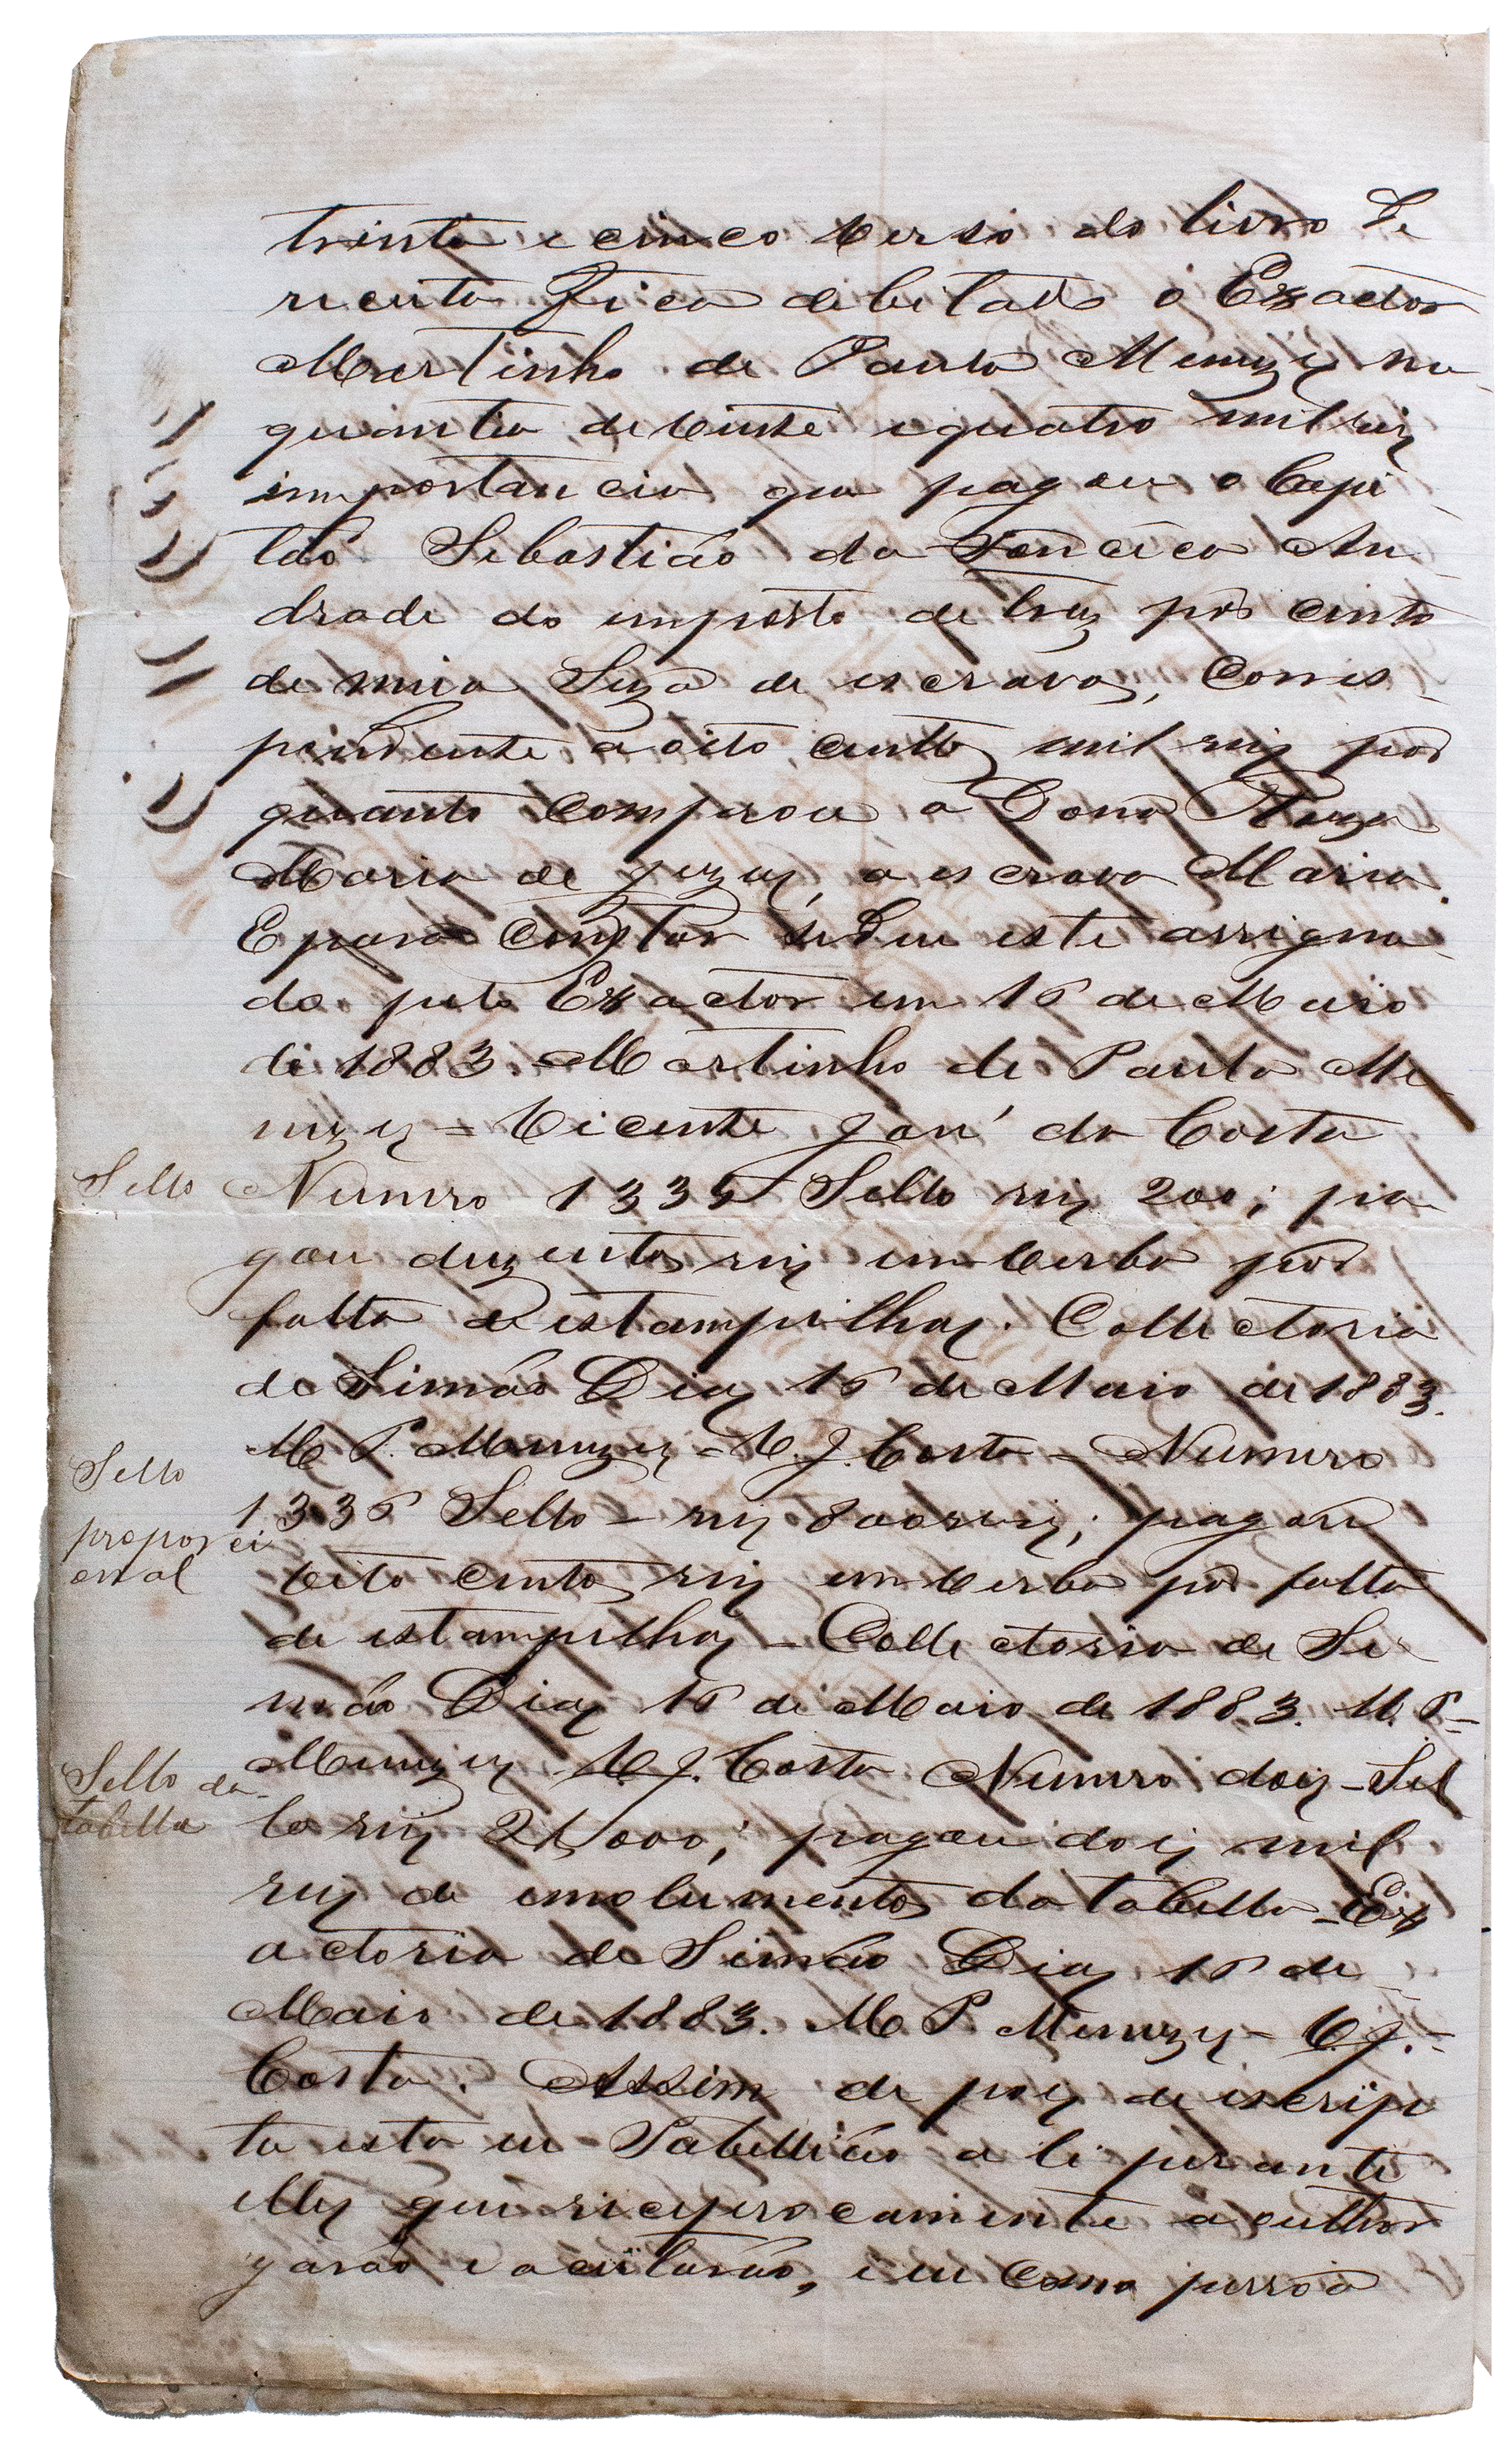 trinta e cinco verso do livro de
receita fica debitado o Exactor
Martinho de Paula Menezes na
quantia de vinte e quatro mil reis
importancia que pagou o Capi
tão Sebastião da Fonceca An
drade do imposto de trez por cento
de meia Siza de escravos, Corres
pondente a oito centos mil reis por
quanto comprou a Dona Roza
Maria de Jezus, a escrava Maria.
E para constar se deu este assigna
do pelo Exactor em 16 de Maio
de 1883. Martinho de Paula Me
nezes = Vicente José da Costa
Sello Numero 1335 Sello reis 200; pa
gou duzentos reis em verba por
falta de estampilhas. Collectoria
de Simão Dias 16 de Maio de 1883.
M P. Menezes - V. J. Costa - Numero
Sello
proporci
onal
1336 Sello - reis 800 reis; pagou
oito centos reis em verba por falta
de estampilhas - Collectoria de Si
mão Dias 16 de Maio de 1883. M. P -
Menezes V. J. Costa Numero dois - Sel
Sello da
tabella
lo reis 2$000; pagou dois mil
reis de emolumentos da tabella - Ex
actoria de Simão Dias 16 de
Maio de 1883. M P. Menezes - V. J. -
Costa. Assim de pois de escrip
ta esta eu Tabellião a li perante
elles que reciprocamente a outhor
garão e aceitarão, e eu como pessoa